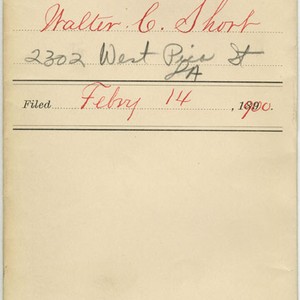 Walter C. Short
2302 West Pico St
LA
Filed Febry 14, 1900.